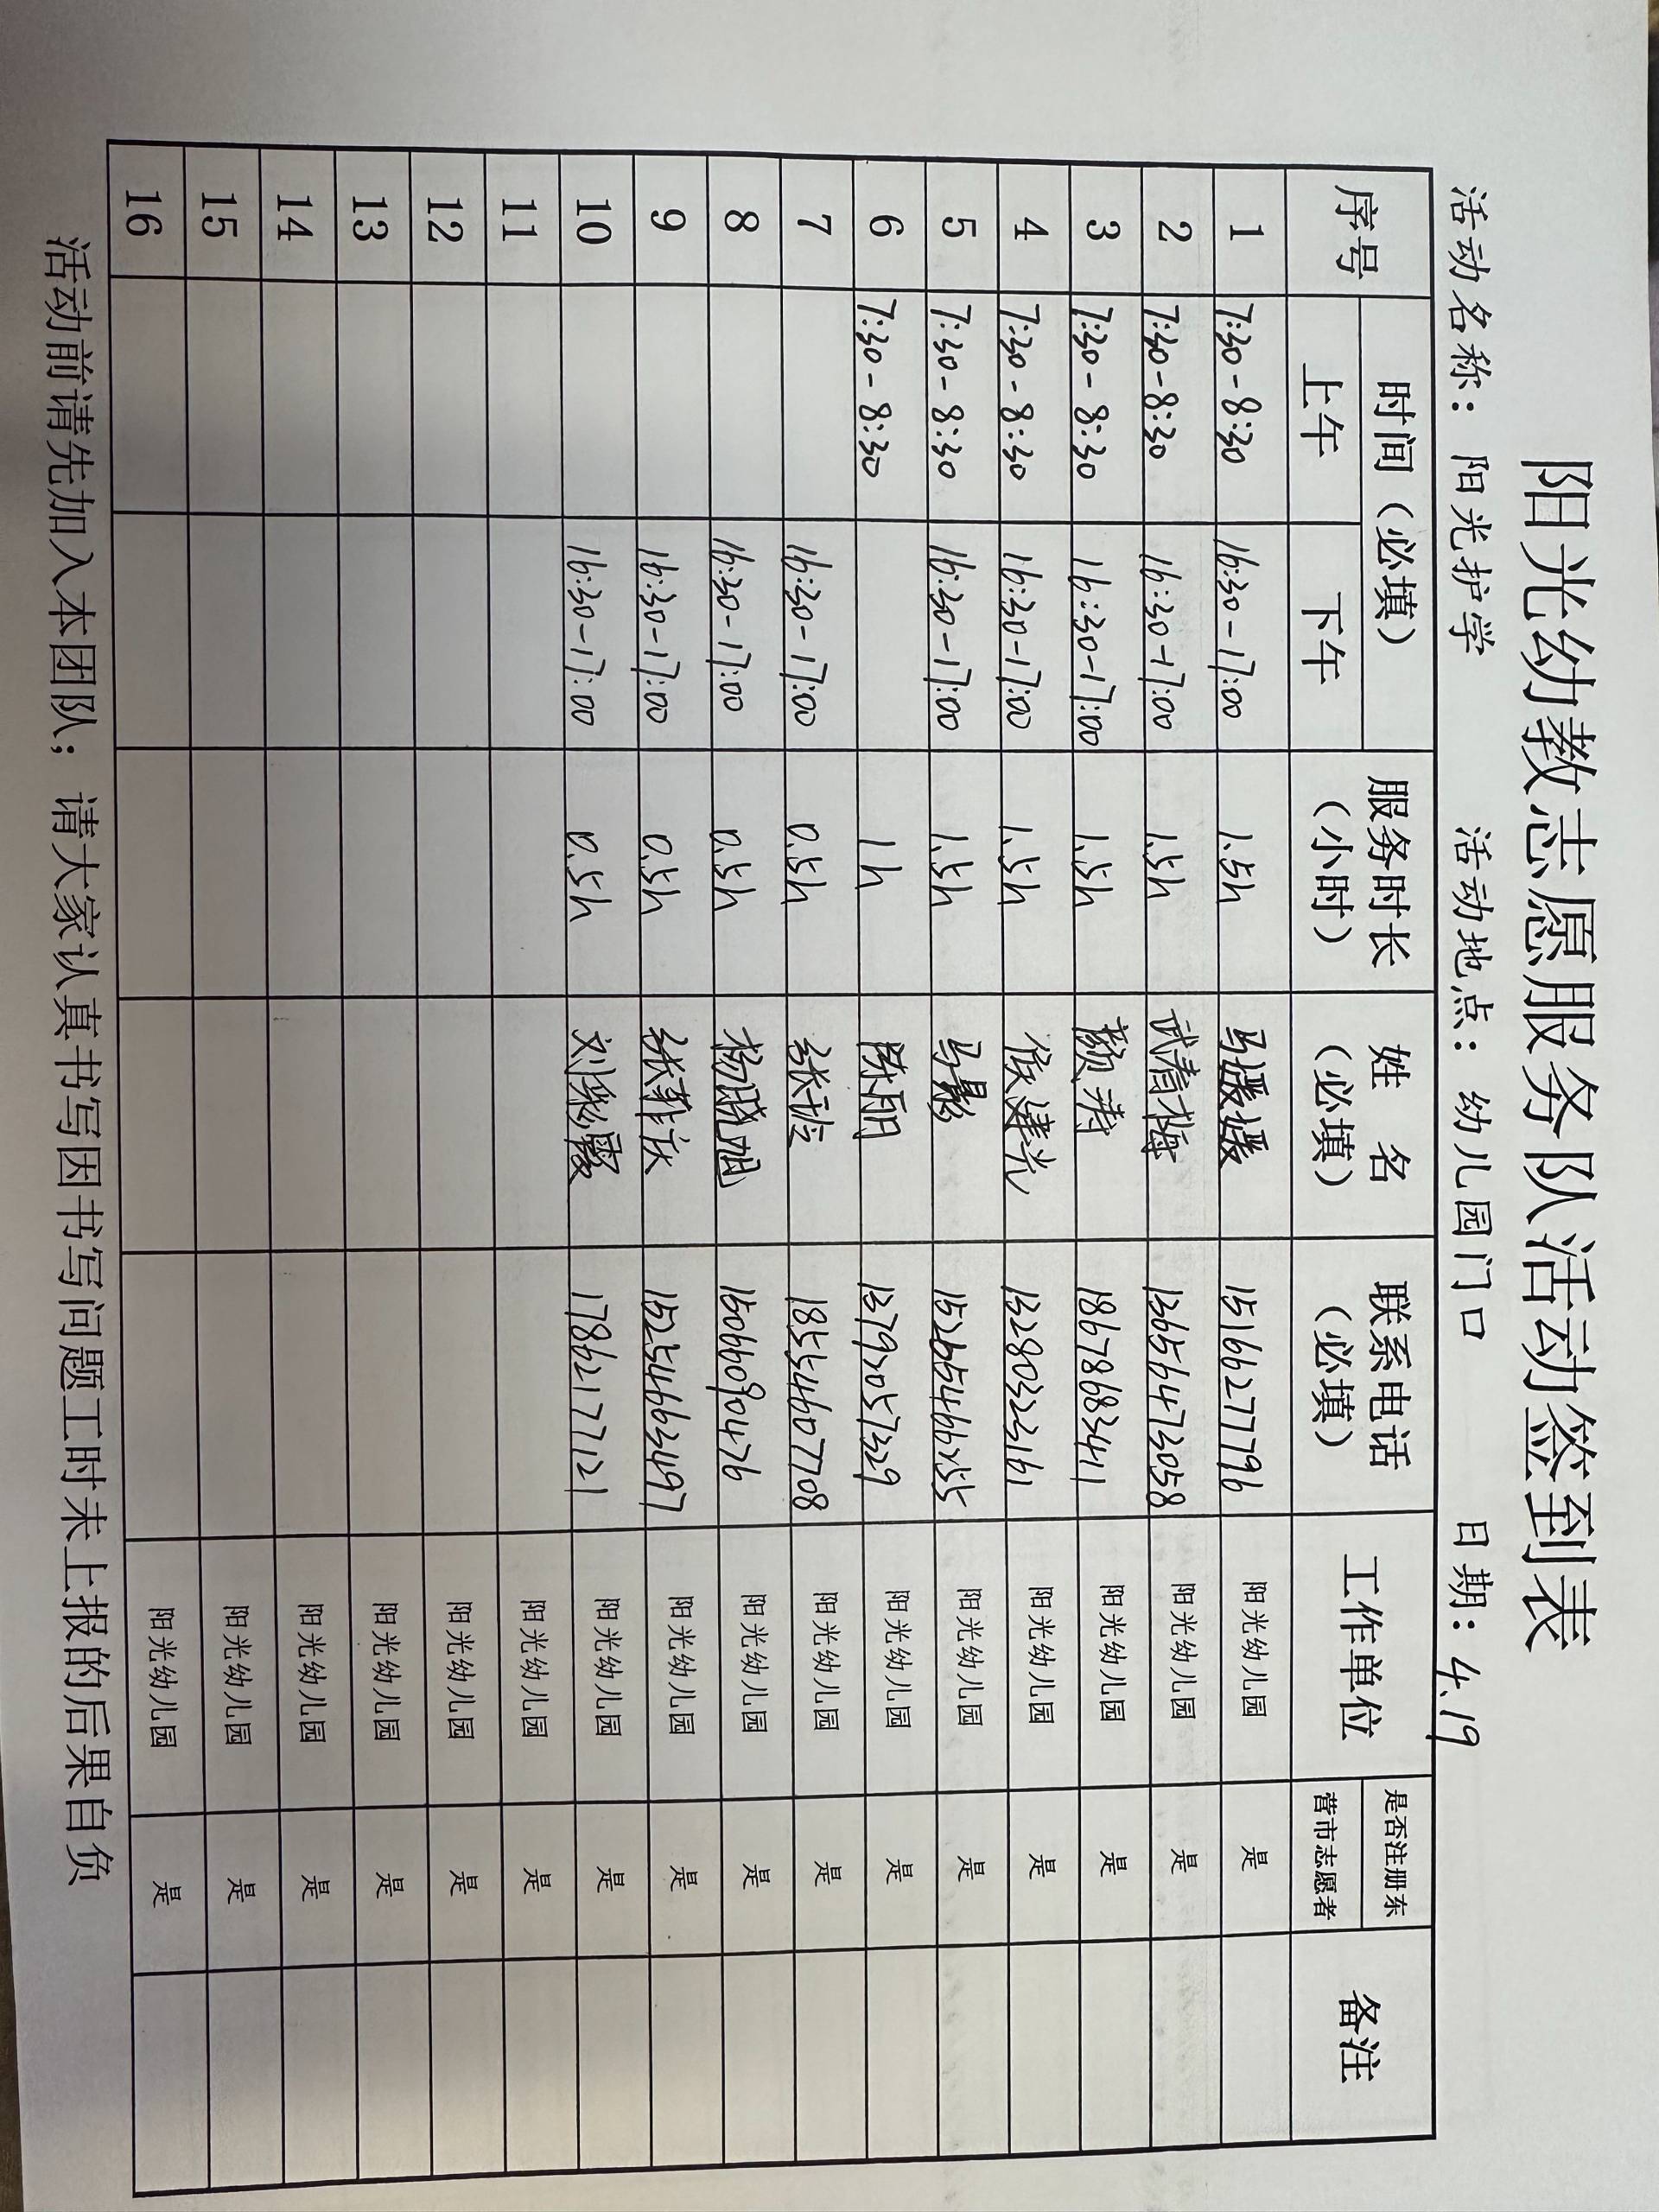 阳光幼教志愿服务队活动签到表
活动名称：阳光护学 活动地点：幼儿园门口 日期：4.19
序号 时间（必填） 服务时长（小时） 姓 名（必填） 联系电话（必填） 工作单位 是否注册东营市志愿者 备注
上午 下午
1 7:30-8:30 16:30-17:00 1.5h 马媛媛 15166277796 阳光幼儿园 是
2 7:30-8:30 16:30-17:00 1.5h 武春梅 13656473058 阳光幼儿园 是
3 7:30-8:30 16:30-17:00 1.5h 颜涛 18678683411 阳光幼儿园 是
4 7:30-8:30 16:30-17:00 1.5h 侯建光 13280323161 阳光幼儿园 是
5 7:30-8:30 16:30-17:00 1.5h 马影 阳光幼儿园 是
6 7:30-8:30 1h 陈丽 13792057329 阳光幼儿园 是
7 16:30-17:00 0.5h 张 18554607708 阳光幼儿园 是
8 16:30-17:00 0.5h 杨晓旭 15066090476 阳光幼儿园 是
9 16:30-17:00 0.5h 张 15254663497 阳光幼儿园 是
10 16:30-17:00 0.5h 刘彩霞 17862177121 阳光幼儿园 是
11 阳光幼儿园 是
12 阳光幼儿园 是
13 阳光幼儿园 是
14 阳光幼儿园 是
15 阳光幼儿园 是
16 阳光幼儿园 是
活动前请先加入本团队；请大家认真书写因书写问题工时未上报的后果自负